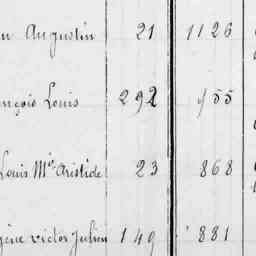 n Augustin 21 1126
nçois Louis 292 955
Louis Mie Aristide 23 868
gène victor Julien 149 881